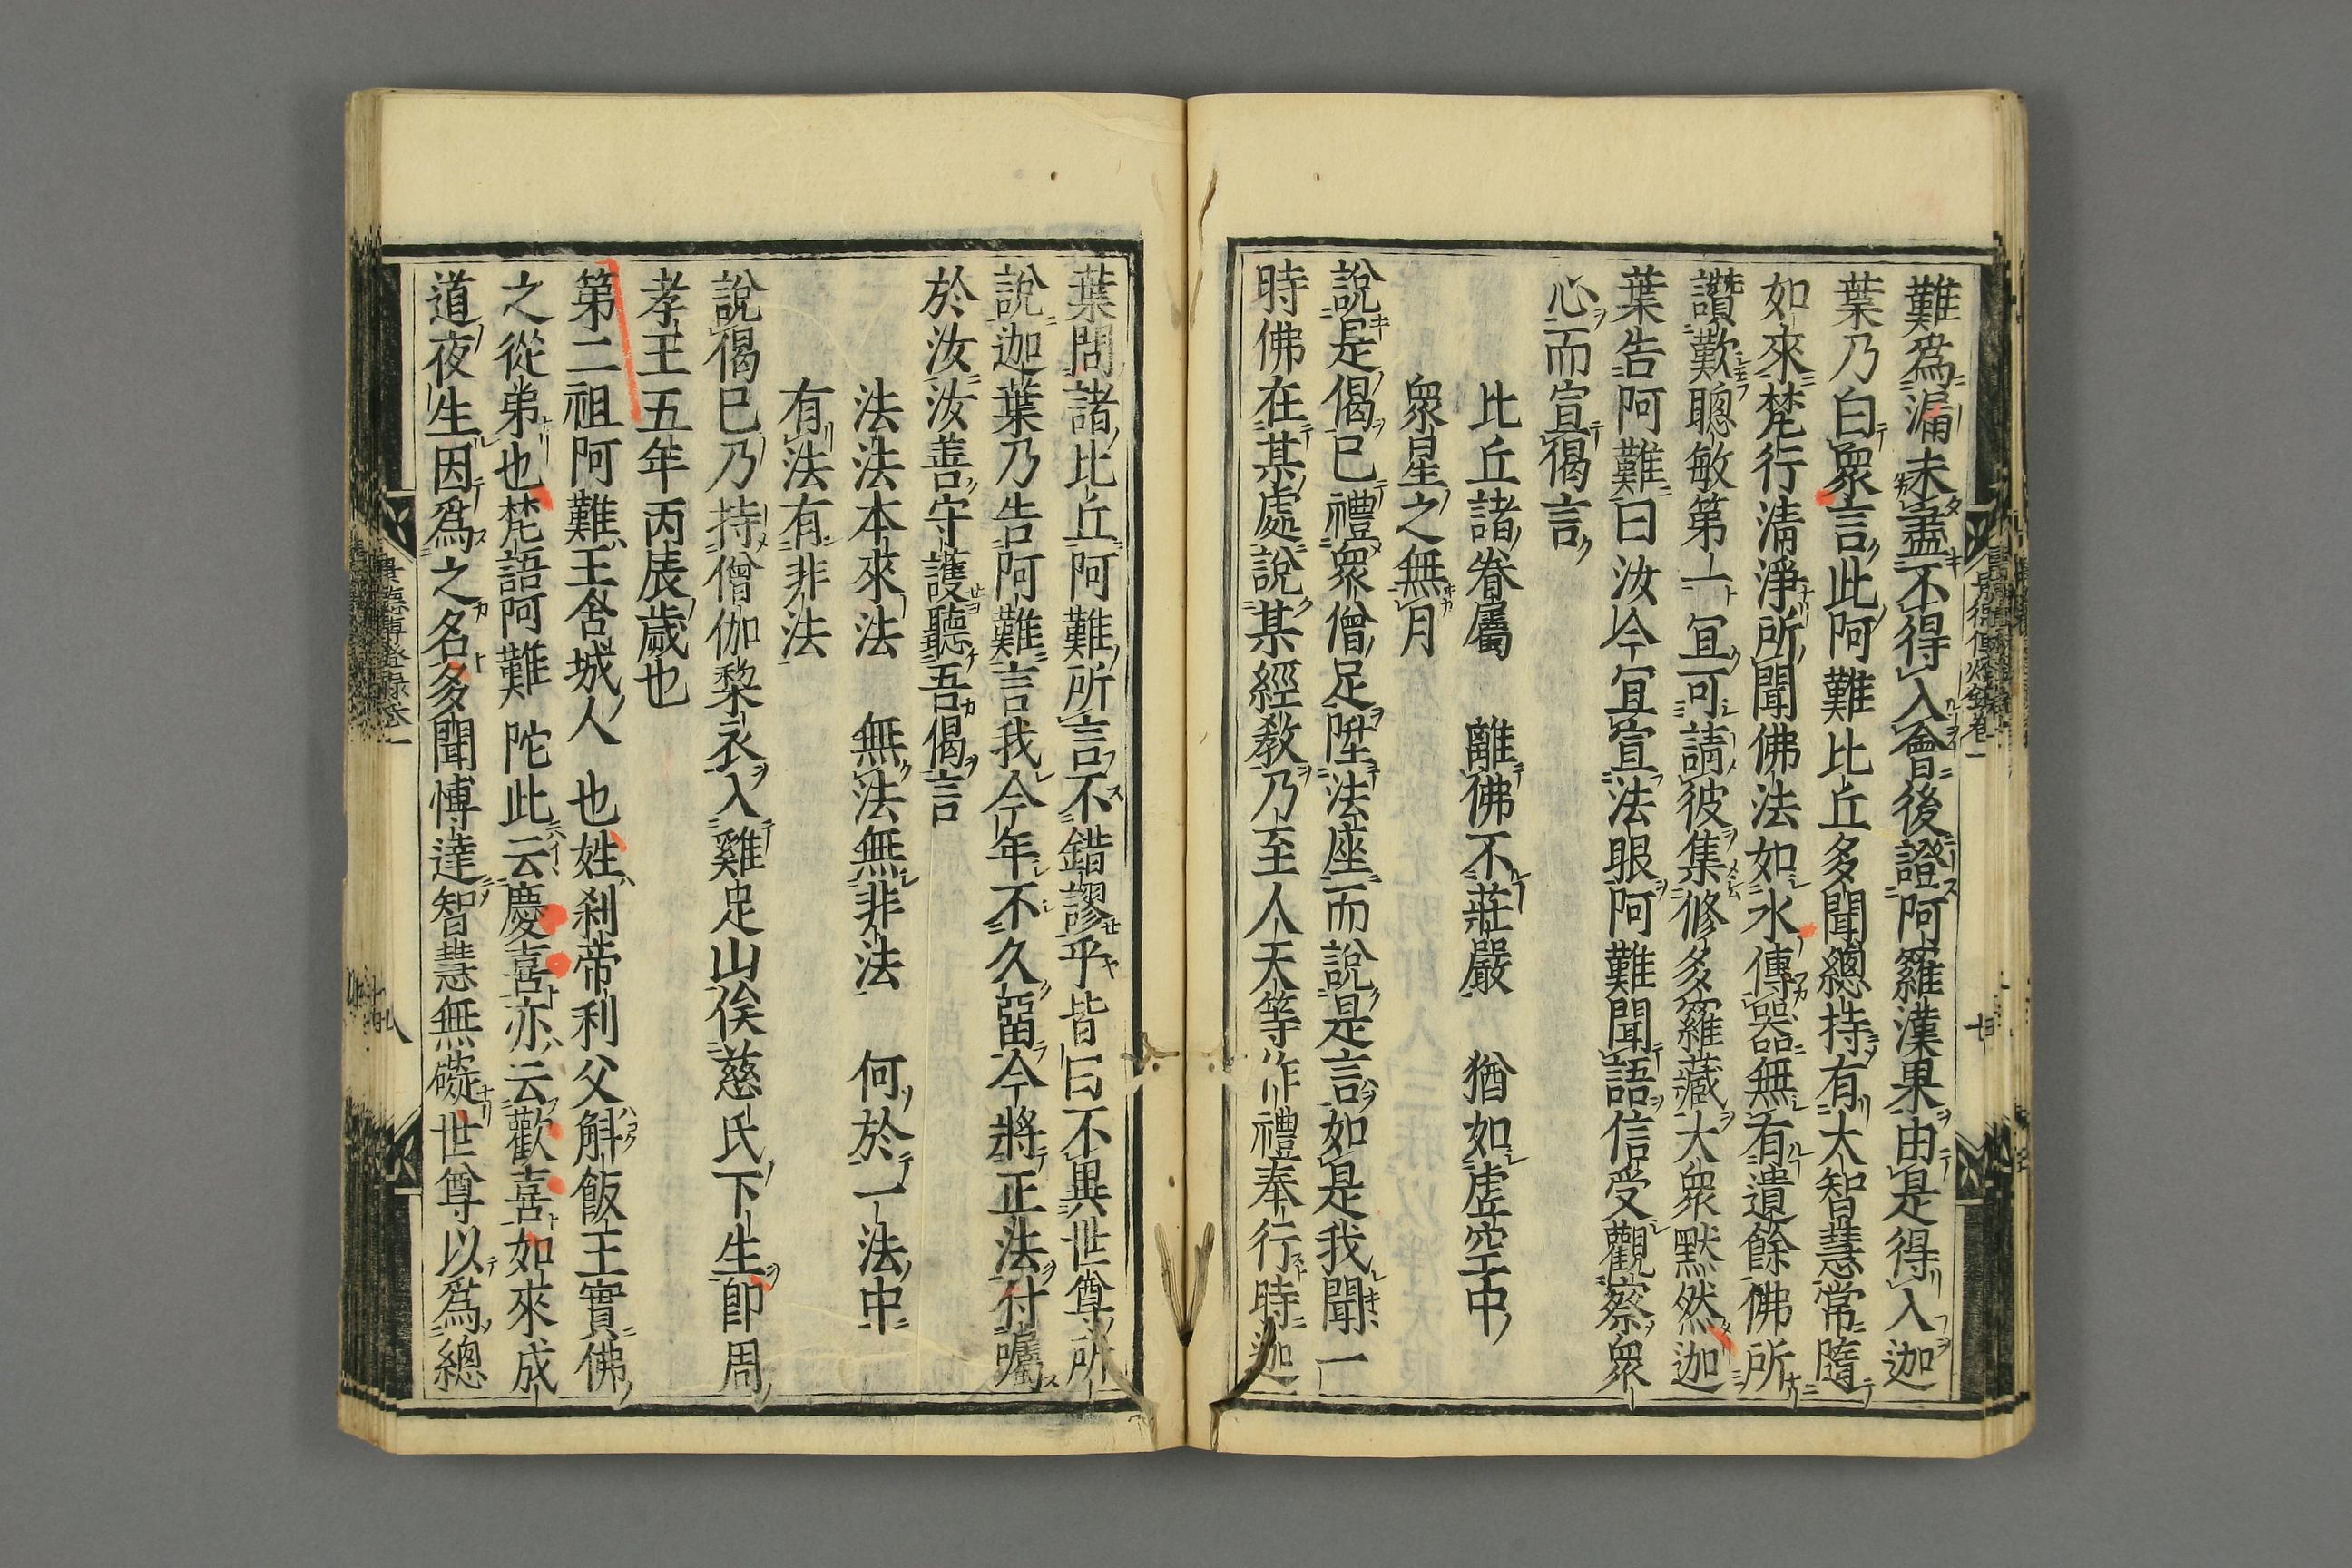 難爲漏未盡不得入會後證阿羅漢果由是得入迦
葉乃白衆言此阿難比丘多聞總持有大智慧常隨
如來梵行清淨所聞佛法如水傳器無有遺餘佛所
讚歎聰敏第一宜可請彼集修多羅藏大衆默然迦
葉告阿難曰汝今宜宣法眼阿難聞語信受觀察衆
心而宣偈言
比丘諸眷屬　離佛不莊嚴　猶如虛空中
衆星之無月
說是偈已禮衆僧足陞法座而說是言如是我聞一
時佛在某處說某經教乃至人天等作禮奉行時迦
葉問諸比丘阿難所言不錯謬乎皆曰不異世尊所
說迦葉乃告阿難言我今年不久留今將正法付囑
於汝汝善守護聽吾偈言
法法本來法　無法無非法　何於一法中
有法有非法
說偈已乃持僧伽梨衣入雞足山俟慈氏下生卽周
孝王五年丙辰歲也
第二祖阿難王舍城人也姓刹帝利父斛飯王實佛
之從弟也梵語阿難陀此云慶喜亦云歡喜如來成
道夜生因爲之名多聞博達智慧無礙世尊以爲總
景德傳燈錄卷一